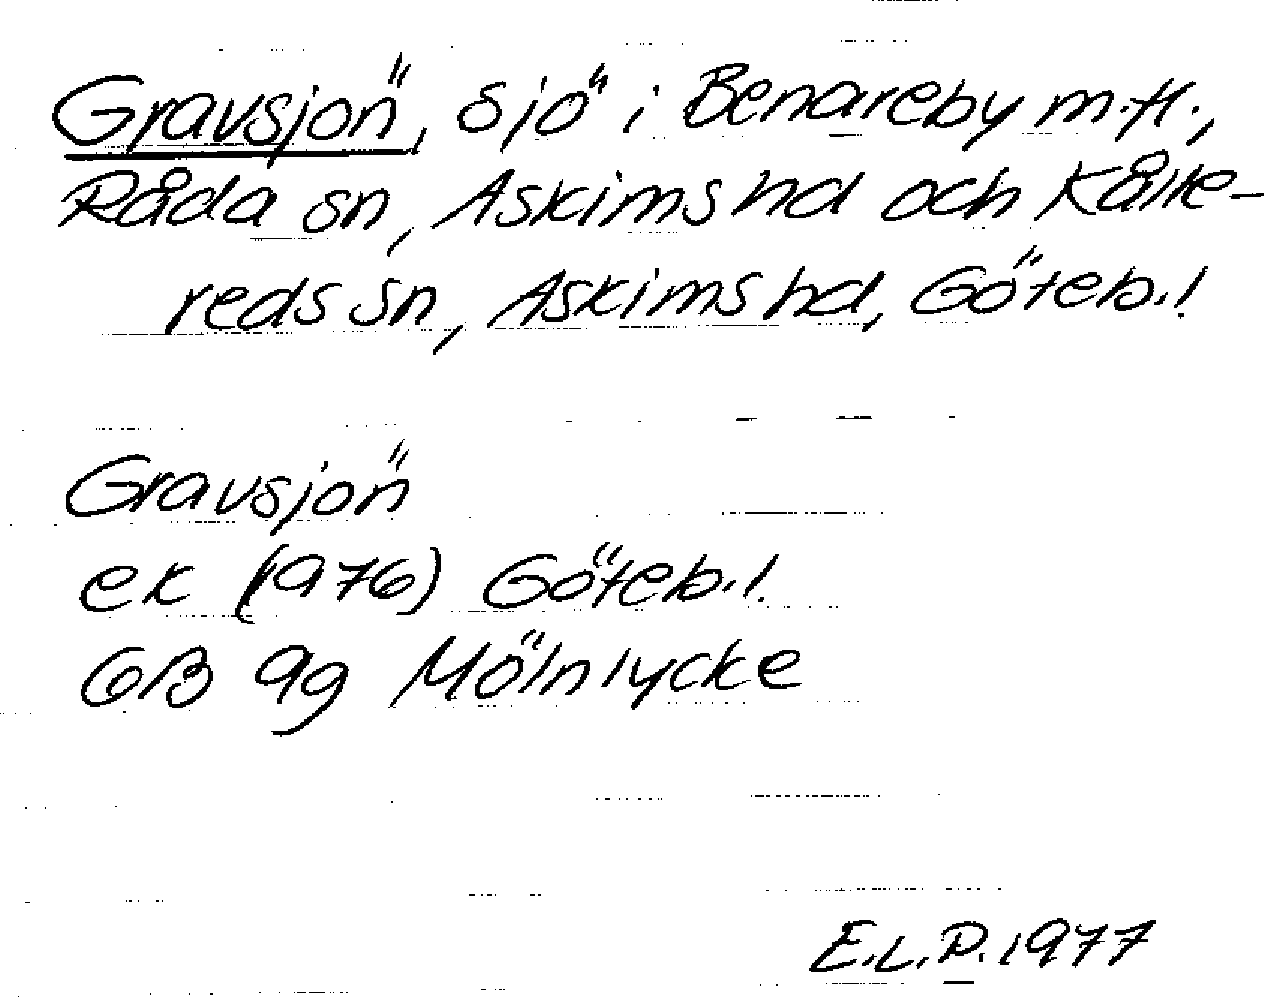 Gravsjön, sjö i Benareby m.fl.,
Råda sn, Askims hd och Kålle-
reds sn, Askims hd, Göteb.l.
Gravsjön
ek (1976) Göteb.l.
6B 9g Mölnlycke
E.L.P. 1977